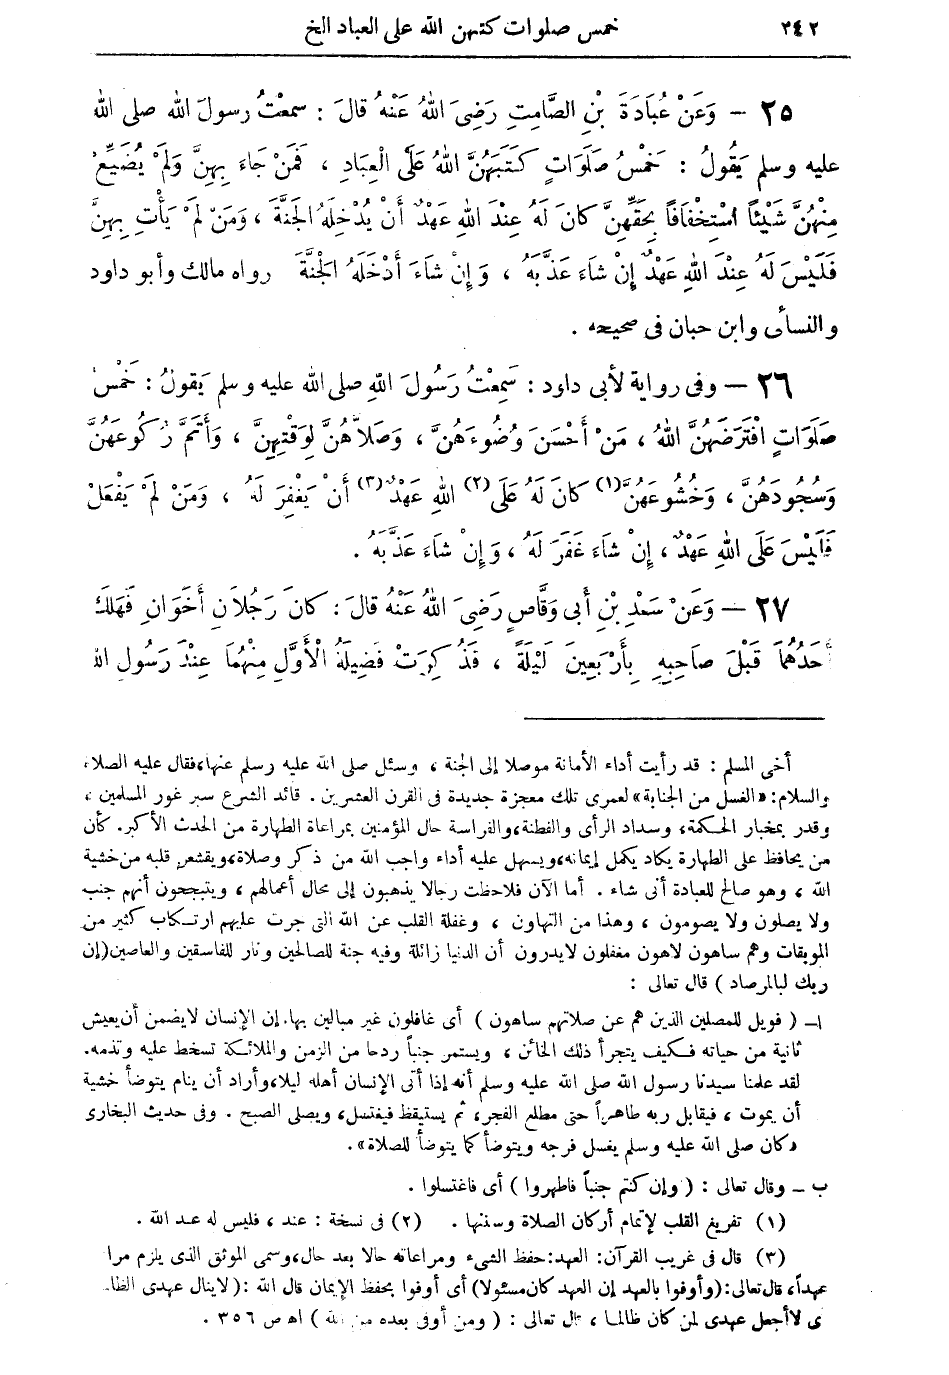 ٢٤٢ خمس صلوات كتبهن الله على العباد الخ
٢٥ – وَعَنْ عُبَادَةَ بْنِ الصَّامِتِ رَضِىَ اللهُ عَنْهُ قَالَ : سمعْتُ رسولَ الله صلى الله
عليه وسلم يَقُولُ : خَمْسُ صَلَوَاتٍ كَتَبَهُنَّ اللهُ عَلَى الْعِبَادِ ، فَمَنْ جَاءَ بِهِنَّ وَلَمْ يُضَيِّعْ
مِنْهُنَّ شَيْئًا اسْتِخْفَافًا بِحَقِّهِنَّ كَانَ لَهُ عِنْدَ اللهِ عَهْدٌ أَنْ يُدْخِلَهُ الجَنَّةَ ، وَمَنْ لَمْ يَأْتِ بِهِنَّ
فَلَيْسَ لَهُ عِنْدَ اللهِ عَهْدٌ إِنْ شَاءَ عَذَّبَهُ ، وَإِنْ شَاءَ أَدْخَلَهُ الجَنَّةَ رواه مالك وأبو داود
والنسأى وابن حبان فى صحيحه .
٢٦ – وفى رواية لأبى داود : سَمِعْتُ رَسُولَ اللهِ صلى الله عليه وسلم يَقُولُ : خَمْسُ
صَلَوَاتٍ افْتَرَضَهُنَّ اللهُ ، مَنْ أَحْسَنَ وُضُوءَهُنَّ ، وَصَلاَّهُنَّ لِوَقْتِهِنَّ ، وَأَتَمَّ رُكُوعَهُنَّ
وَسُجُودَهُنَّ ، وَخُشُوعَهُنَّ (١) كَانَ لَهُ عَلَى (٢) اللهِ عَهْدٌ (٣) أَنْ يَغْفِرَ لَهُ ، وَمَنْ لَمْ يَفْعَلْ
فَلَيْسَ عَلَى اللهِ عَهْدٌ ، إِنْ شَاءَ غَفَرَ لَهُ ، وَإِنْ شَاءَ عَذَّبَهُ .
٢٧ – وَعَنْ سَعْدِ بْنِ أَبى وَقَّاصٍ رَضِىَ اللهُ عَنْهُ قَالَ : كَانَ رَجُلاَنِ أَخَوَانِ فَهَلَكَ
أَحَدُهُمَا قَبْلَ صَاحِبِهِ بِأَرْبَعِينَ لَيْلَةً ، فَذُكِرَتْ فَضِيلَةُ الْأَوَّلِ مِنْهُمَا عِنْدَ رَسُولِ الله
أخى المسلم : قد رأيت أداء الأمانة موصلا إلى الجنة ، وسئل صلى الله عليه وسلم عنها ، فقال عليه الصلاة
والسلام: «الغسل من الجنابة» لعمرى تلك معجزة جديدة فى القرن العشرين . قائد الشرع سبر غور المسلمين ،
وقدر بمخبار الحكمة ، وسداد الرأى والفطنة ، والفراسة حال المؤمنين بمراعاة الطهارة من الحدث الأكبر. كأن
من يحافظ على الطهارة يكاد يكمل إيمانه ، ويسهل عليه أداء واجب الله من ذكر وصلاة ، ويقشعر قلبه من خشية
الله ، وهو صالح للعبادة أنى شاء . أما الآن فلاحظت رجالا يذهبون إلى محال أعمالهم ، ويتبجحون أنهم جنب
ولا يصلون ولا يصومون ، وهذا من التهاون ، وغفلة القلب عن الله التى جرت عليهم ارتكاب كثير من
الموبقات وهم ساهون لاهون مغفلون لايدرون أن الدنيا زائلة وفيه جنة للصالحين ونار للفاسقين والعاصين (إن
ربك لبالمرصاد ) قال تعالى :
ا ــ ( فويل للمصلين الذين هم عن صلاتهم ساهون ) أى غافلون غير مبالين بها. إن الإنسان لايضمن أن يعيش
ثانية من حياته فكيف يتجرأ ذلك الخائن ، ويستمر جنباً ردحا من الزمن والملائكة تسخط عليه وتذمه.
لقد علمنا سيدنا رسول الله صلى الله عليه وسلم أنه إذا أتى الإنسان أهله ليلا ، وأراد أن ينام يتوضأ خشية
أن يموت ، فيقابل ربه طاهراً حتى مطلع الفجر ، ثم يستيقظ فيغتسل ، ويصلى الصبح . وفى حديث البخارى
«كان صلى الله عليه وسلم يغسل فرجه ويتوضأ كما يتوضأ للصلاة».
ب ــ وقال تعالى : ( وإن كنتم جنباً فاطهروا ) أى فاغتسلوا .
(١) تفريغ القلب لإتمام أركان الصلاة وسننها . (٢) فى نسخة : عند ، فليس له عند الله .
(٣) قال فى غريب القرآن: العهد: حفظ الشىء ومراعاته حالا بعد حال ، وسمى الموثق الذى يلزم مرا
عهداً ، قال تعالى : (وأوفوا بالعهد إن العهد كان مسئولا) أى أوفوا بحفظ الإيمان قال الله : (لاينال عهدى الظا
ى لاأجعل عهدى لمن كان ظالما ، قال تعالى : ( ومن أوفى بعهده من الله ) اه ص ٣٥٦ .